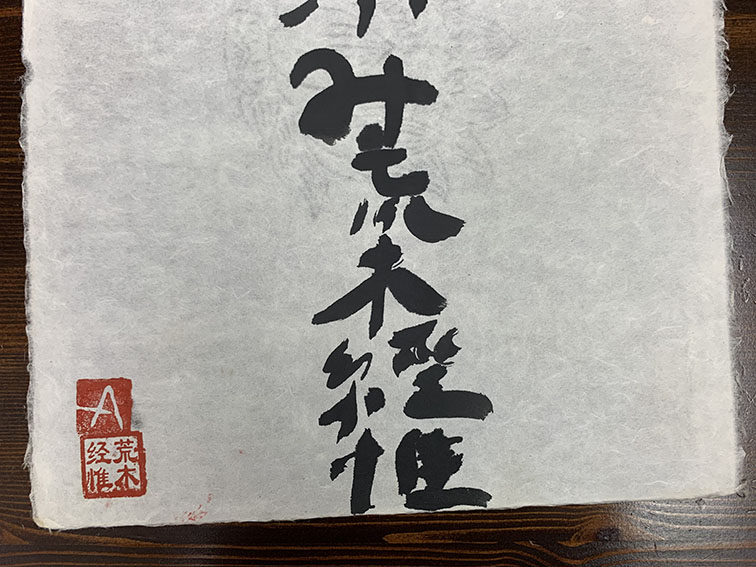 み荒木経惟
A
荒木
经惟